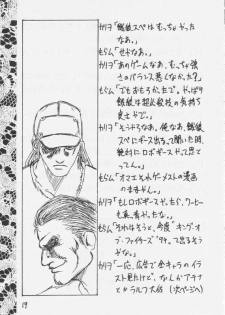 カリヲ「餓狼スペはもっちゃだった
なあ。
もらん「せやなあ。
カリヲ「あのゲームなあ、もっちゃ強
さのバランス悪しなかった?
もらん「でもおもろかったで。やっぱり
餓狼は超必殺技の気持ち
良さやで。
カリヲ「そうやろなあ。俺なあ、餓狼
スペにギース出るって聞いた時、
絶対にロボギースやって思と
ってん。
もらん「オマエそれゲーメストの漫画
のまますやん。
カリヲ「もしロボギースやったら、ワーヒー
も真っ青やったな。
もらん「それはそうと、今度『キング・オ
ブ・ファイターズ'94』って出るそう
やな。
カリヲ「一応、広告で全キャラのイラ
スト見たけど、なんかアテナ
とかラルフ大佐 (次ページへ)
19